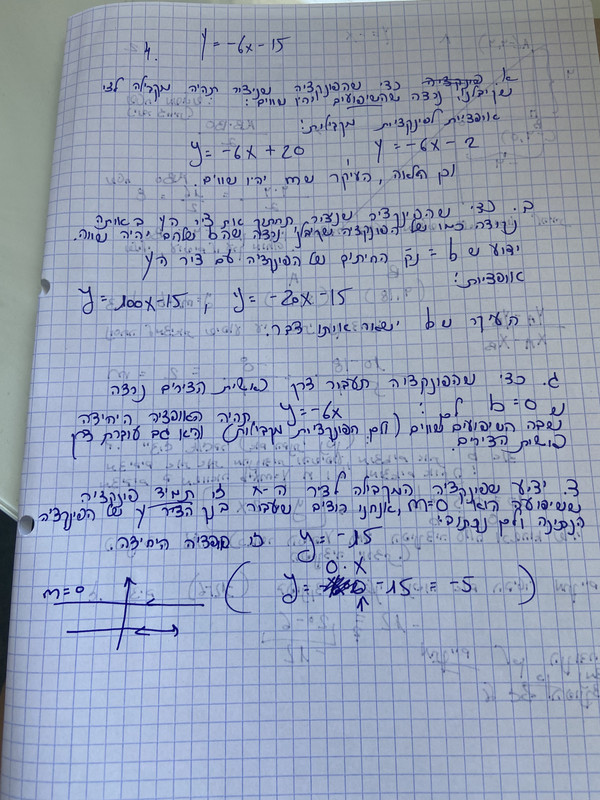 4. y = -6x - 15
א. פונקציה כדי שהפונקציה שניצור תהיה מקבילה לזו
שקיבלנו, נרצה שהשיפועים יהיו שווים:
אופציות לפונקציות מקבילות:
y = -6x + 20 y = -6x - 2
וכן הלאה, העיקר שm יהיו שווים.
ב. כדי שהפונקציה שניצור תחתוך את ציר הy באותה
נקודה כמו של הפונקציה שקיבלנו נרצה שהb שלהם יהיה שווה.
ידוע שb = נק' החיתוך של הפונקציה עם ציר הy
אופציות:
y = 100x - 15 , y = -20x - 15
העיקר שb ישאר אותו דבר.
ג. כדי שהפונקציה תעבור דרך ראשית הצירים נרצה
שb = 0 ולכן: y = -6x תהיה האופציה היחידה
שבה השיפועים שווים (ולכן הפונקציות מקבילות) והיא גם עוברת דרך
ראשית הצירים.
ד. ידוע שפונקציה המקבילה לציר ה-x זו תמיד פונקציה
ששיפועה הוא m=0, אנחנו רוצים שתעבור בנק' הציר y של הפונקציה
הנתונה ולכן נכתוב:
y = -15 זו אופציה היחידה.
0·x
( y = - 15 = -5 )
m=0